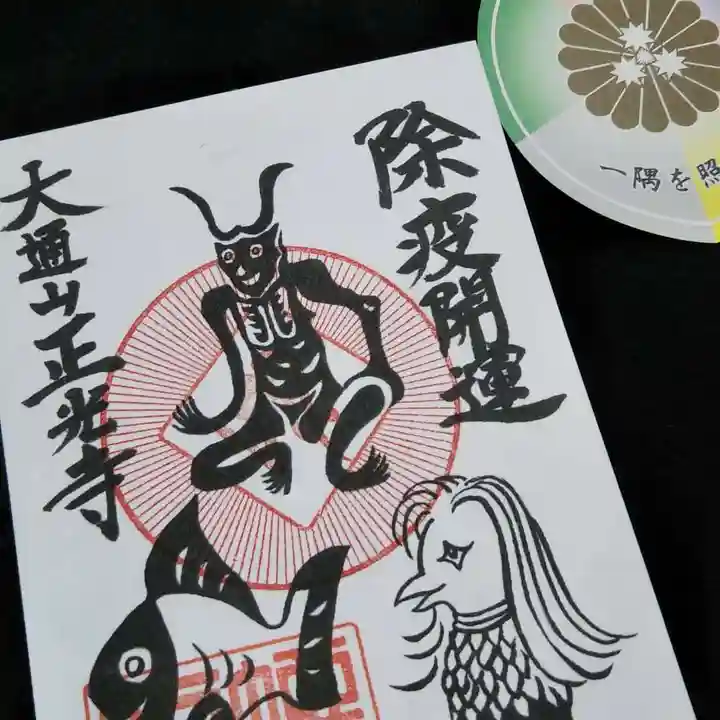 除疫開運
大通山正光寺
一隅を照